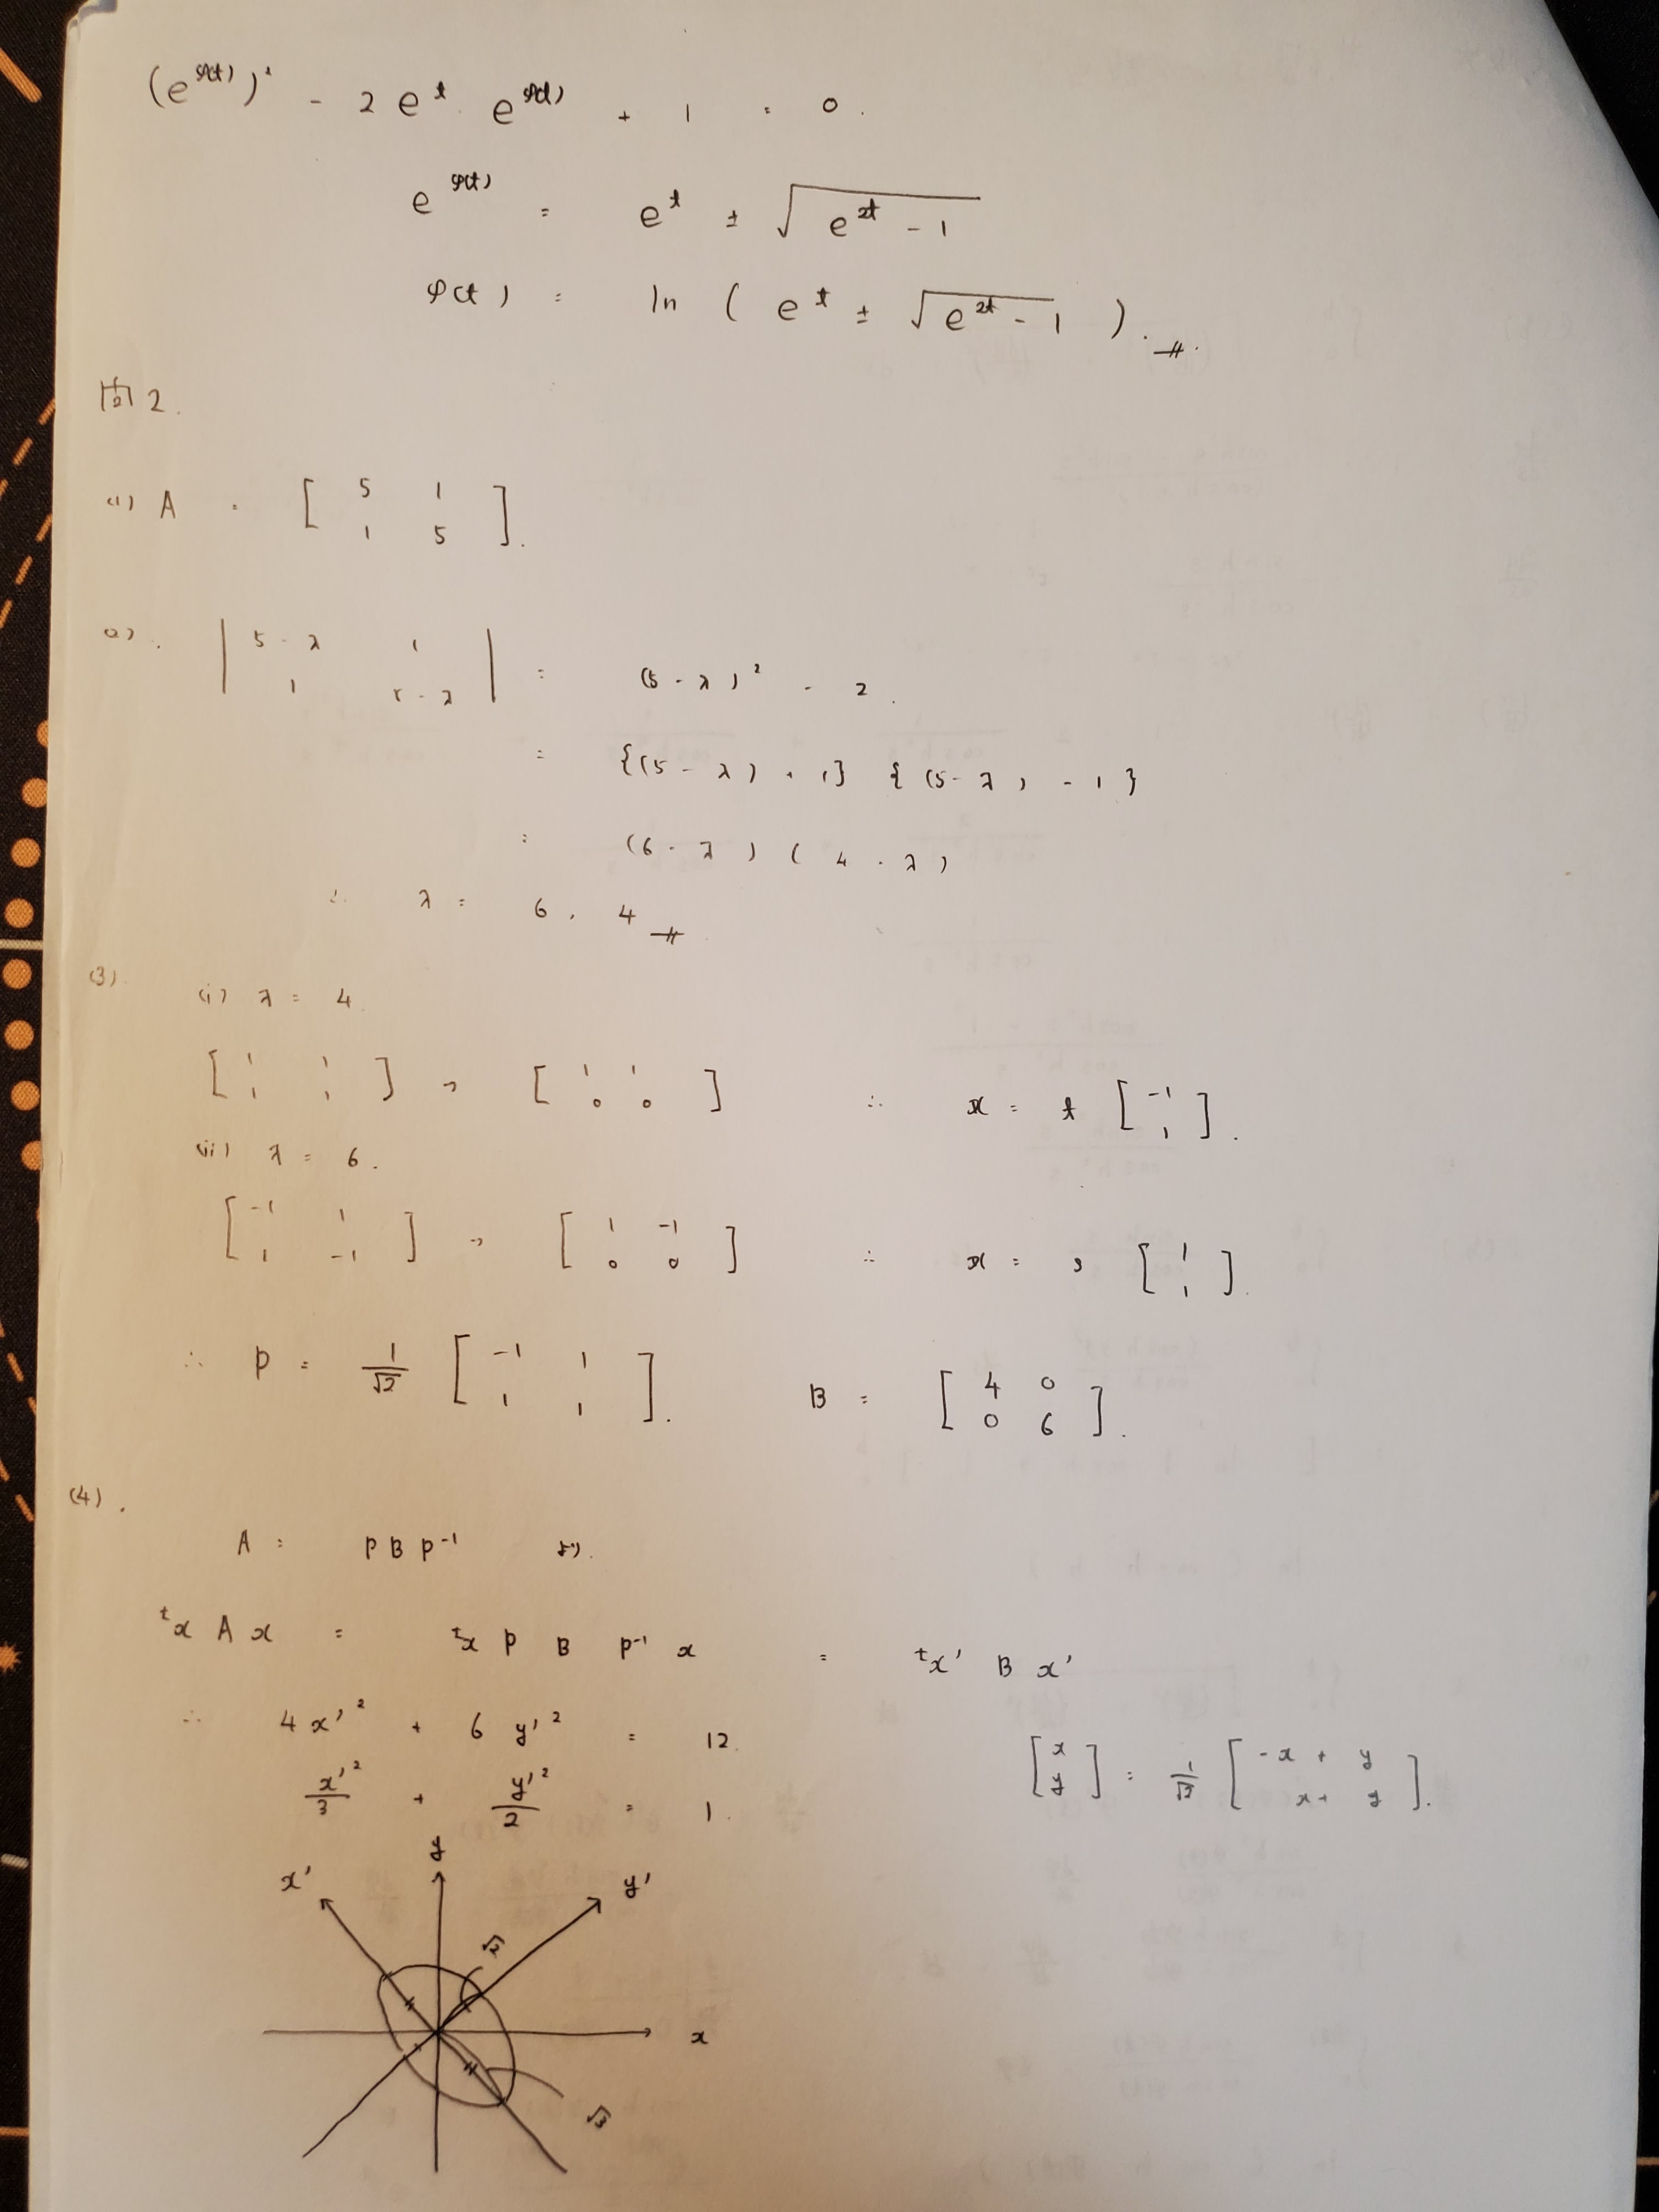 (e^{φ(t)})² - 2e^t · e^{φ(t)} + 1 = 0.
e^{φ(t)} = e^t ± √(e^{2t} - 1)
φ(t) = ln ( e^t ± √(e^{2t} - 1) ).
問2.
(1) A = [ 5 1 ; 1 5 ].
(2). | 5-λ 1 ; 1 5-λ | = (5-λ)² - 2.
= {(5-λ)+1} {(5-λ)-1}
= (6-λ)(4-λ)
∴ λ = 6, 4
(3).
(i) λ = 4
[ 1 1 ; 1 1 ] → [ 1 1 ; 0 0 ] ∴ x = t [ -1 ; 1 ].
(ii) λ = 6.
[ -1 1 ; 1 -1 ] → [ 1 -1 ; 0 0 ] ∴ x = s [ 1 ; 1 ].
∴ P = 1/√2 [ -1 1 ; 1 1 ]. B = [ 4 0 ; 0 6 ].
(4).
A = PBP^{-1} より.
^t x A x = ^t x P B P^{-1} x = ^t x' B x'
∴ 4x'² + 6y'² = 12.
x'²/3 + y'²/2 = 1.
[ x ; y ] = 1/√2 [ -x + y ; x + y ].
y
x'
y'
√2
x
√3